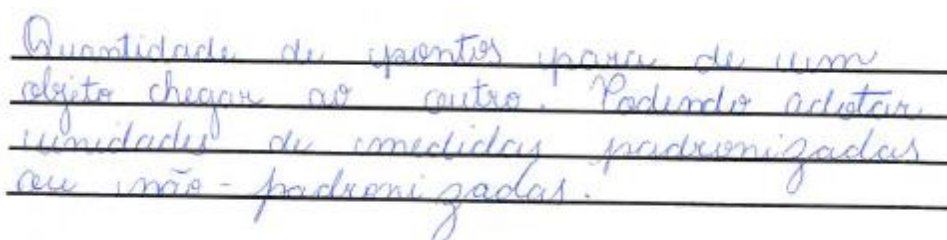 Quantidade de pontos para de um
objeto chegar ao outro. Podendo adotar
unidades de medidas padronizadas
ou não-padronizadas.